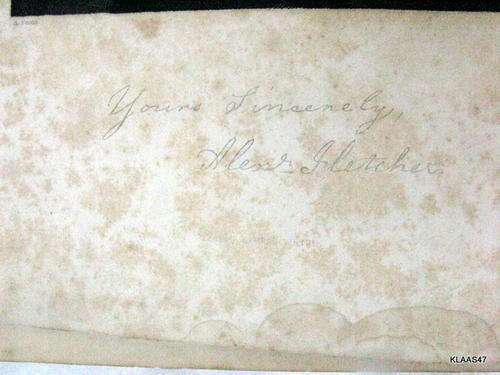 Yours Sincerely,
Alexr. Fletcher
KLAAS47